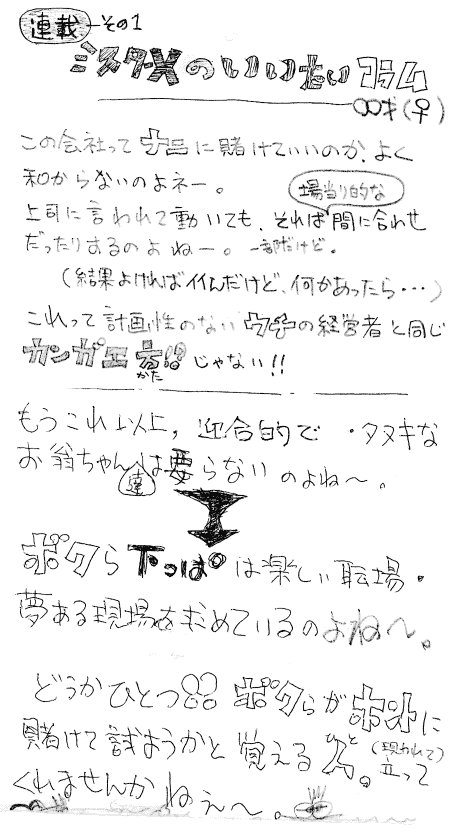 連載 その1
ミスターXのいいたいコラム
○○才(♀)
この会社ってナニに賭けていいのか、よく
和からないのよネー。
場当り的な
上司に言われて動いても、それは間に合わせ
だったりするのよねー。一部だけど。
(結果よければイイんだけど、何かあったら…)
これって計画性のないウチの経営者と同じ
カンガエ方!?じゃない!!
かた
もうこれ以上,迎合的で・タヌキな
お翁ちゃんは要らないのよね〜。
達
ボクら下っぱは楽しい職場・
夢ある現場を求めているのよね〜。
どうかひとつ ボクらがホントに
賭けて試ようかと覚える人。(現われて)立って
ひと
くれませんかねぇ〜。